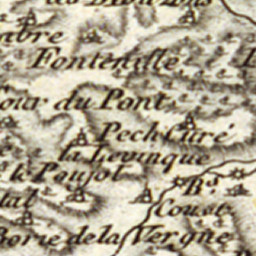 Fontenille
our du Pont
Pech Curé
la Levinque
le Poujol
Couet
Borie de la Vergne